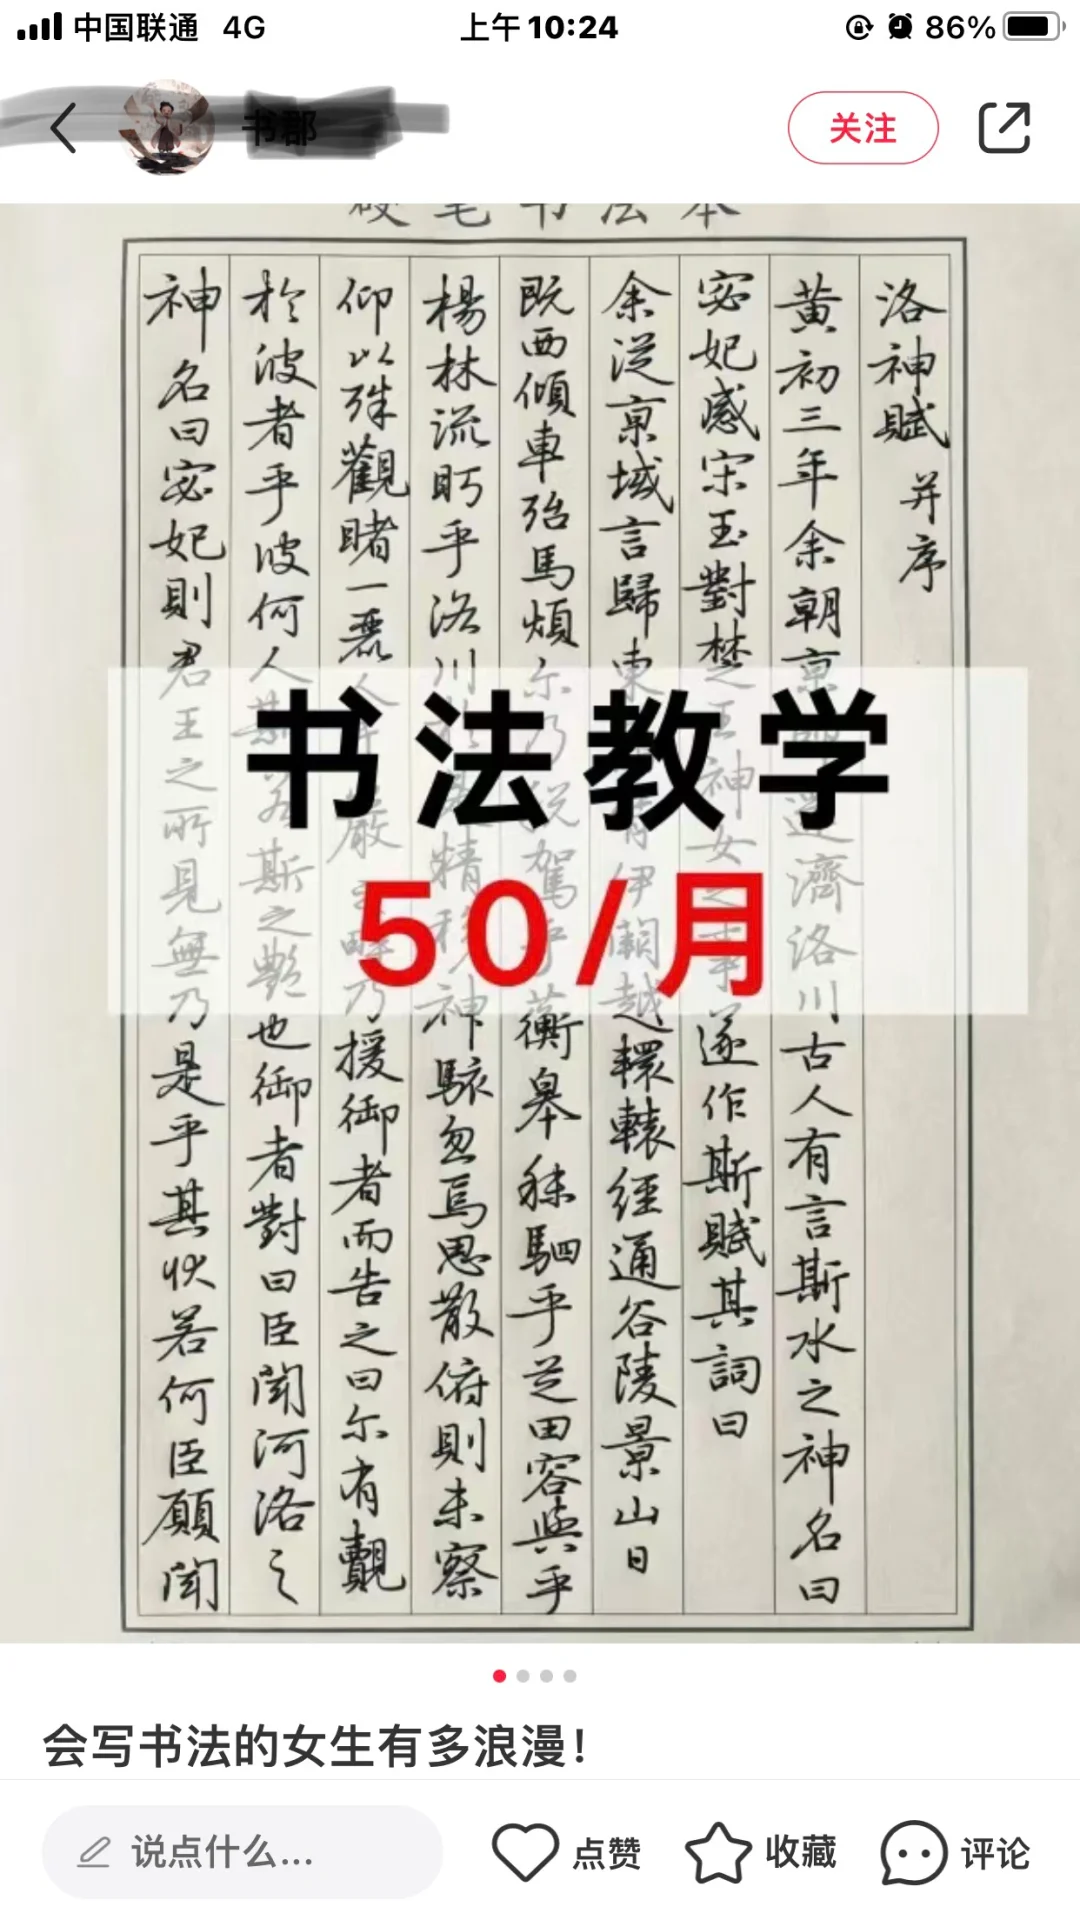 中国联通 4G
上午10:24
86%
书郡
关注
硬笔书法本
洛神赋 并序
黄初三年余朝京師還濟洛川古人有言斯水之神名曰
宓妃感宋玉對楚王神女之事遂作斯賦其詞曰
余从京域言歸東
伊闕越轘轅經通谷陵景山日
既西傾車殆馬煩尔乃税駕乎蘅皋秣駟乎芝田容與乎
楊林流眄乎洛川
精移神駭忽焉思散俯則未察
仰以殊觀睹一麗人
巖
乃援御者而告之曰尔有覿
於彼者乎彼何人斯若斯之艷也御者對曰臣聞河洛之
神名曰宓妃則君王之所見無乃是乎其状若何臣願聞
书法教学
50/月
会写书法的女生有多浪漫！
说点什么...
点赞
收藏
评论